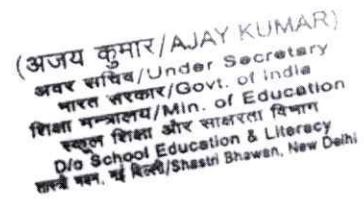 (अजय कुमार/AJAY KUMAR)
अवर सचिव/Under Secretary
भारत सरकार/Govt. of India
शिक्षा मन्त्रालय/Min. of Education
स्कूल शिक्षा और साक्षरता विभाग
D/o School Education & Literacy
शास्त्री भवन, नई दिल्ली/Shastri Bhawan, New Delhi